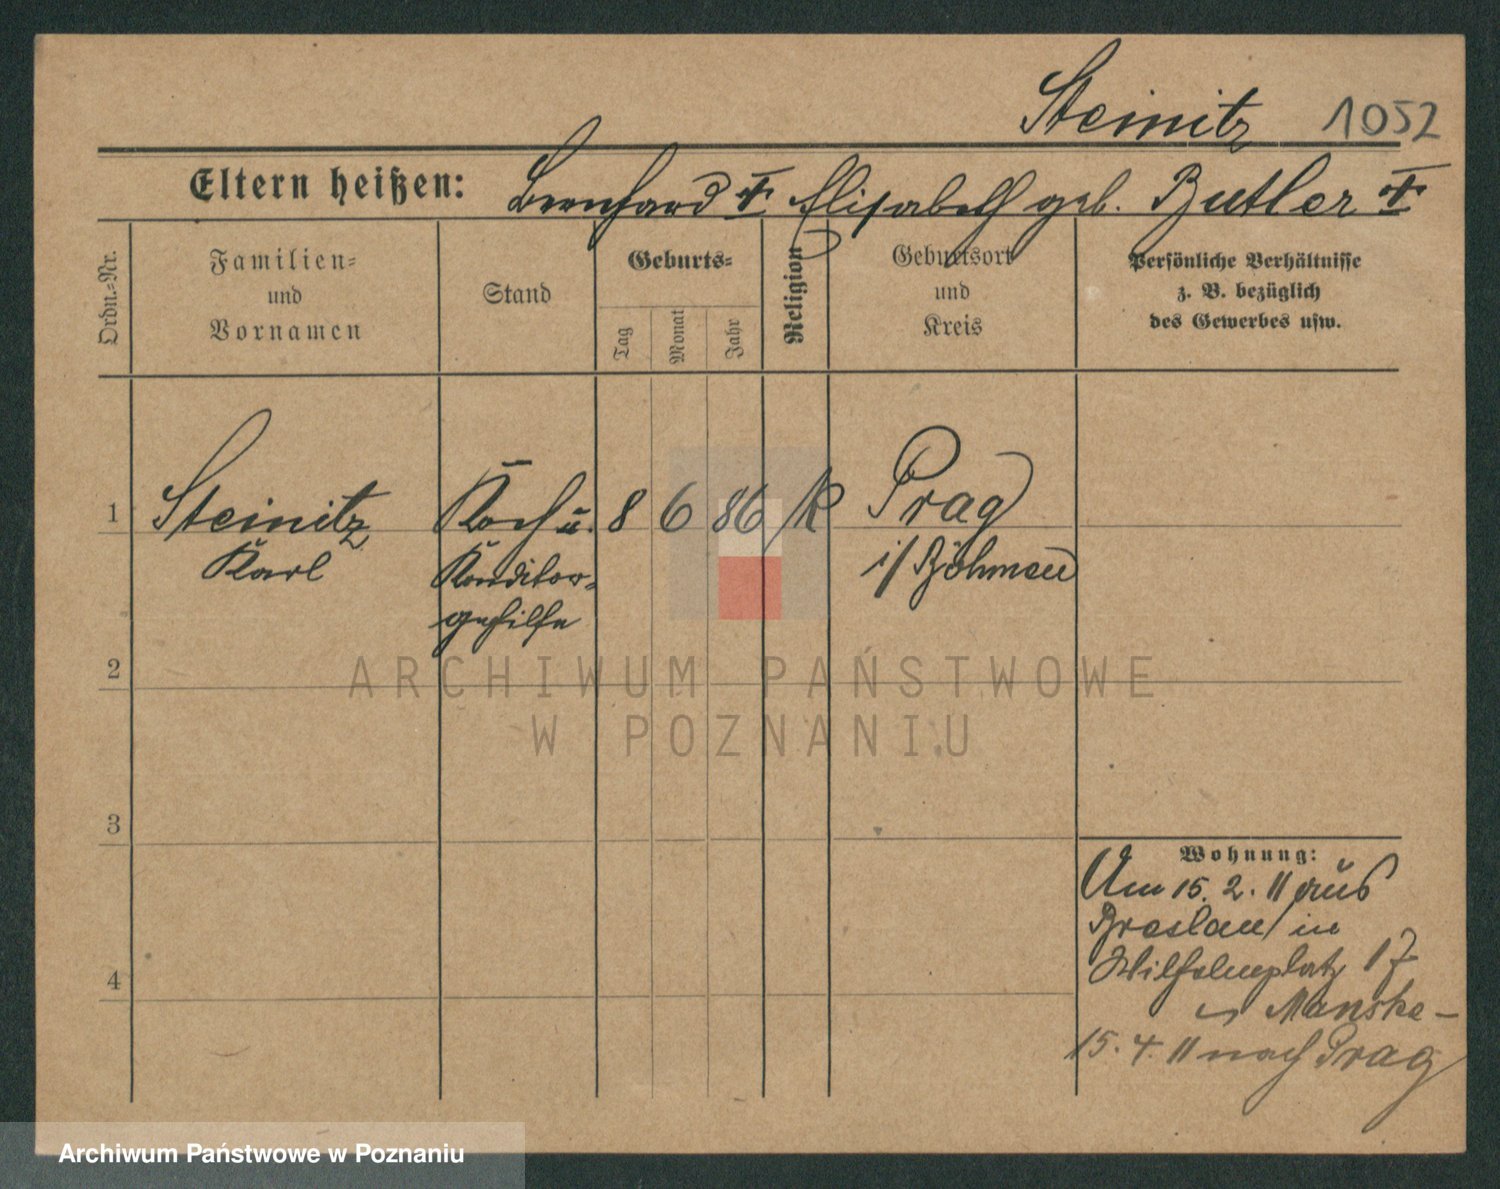 Steinitz 1052
Eltern heißen: Bernhard † Elisabeth geb. Butler †
Ordn.-Nr.
Familien-
und
Vornamen
Stand
Geburts-
Tag
Monat
Jahr
Religion
Geburtsort
und
Kreis
Persönliche Verhältnisse
z. B. bezüglich
des Gewerbes usw.
1 Steinitz Koch u. 8 6 86 k Prag
Karl Konditor- i/ Böhmen
gehilfe
2
ARCHIWUM PAŃSTWOWE
W POZNANIU
3
Wohnung:
Am 15. 2. 11 aus
Breslau in
Wilhelmplatz 17
Manske -
15. 4. 11 nach Prag
4
Archiwum Państwowe w Poznaniu